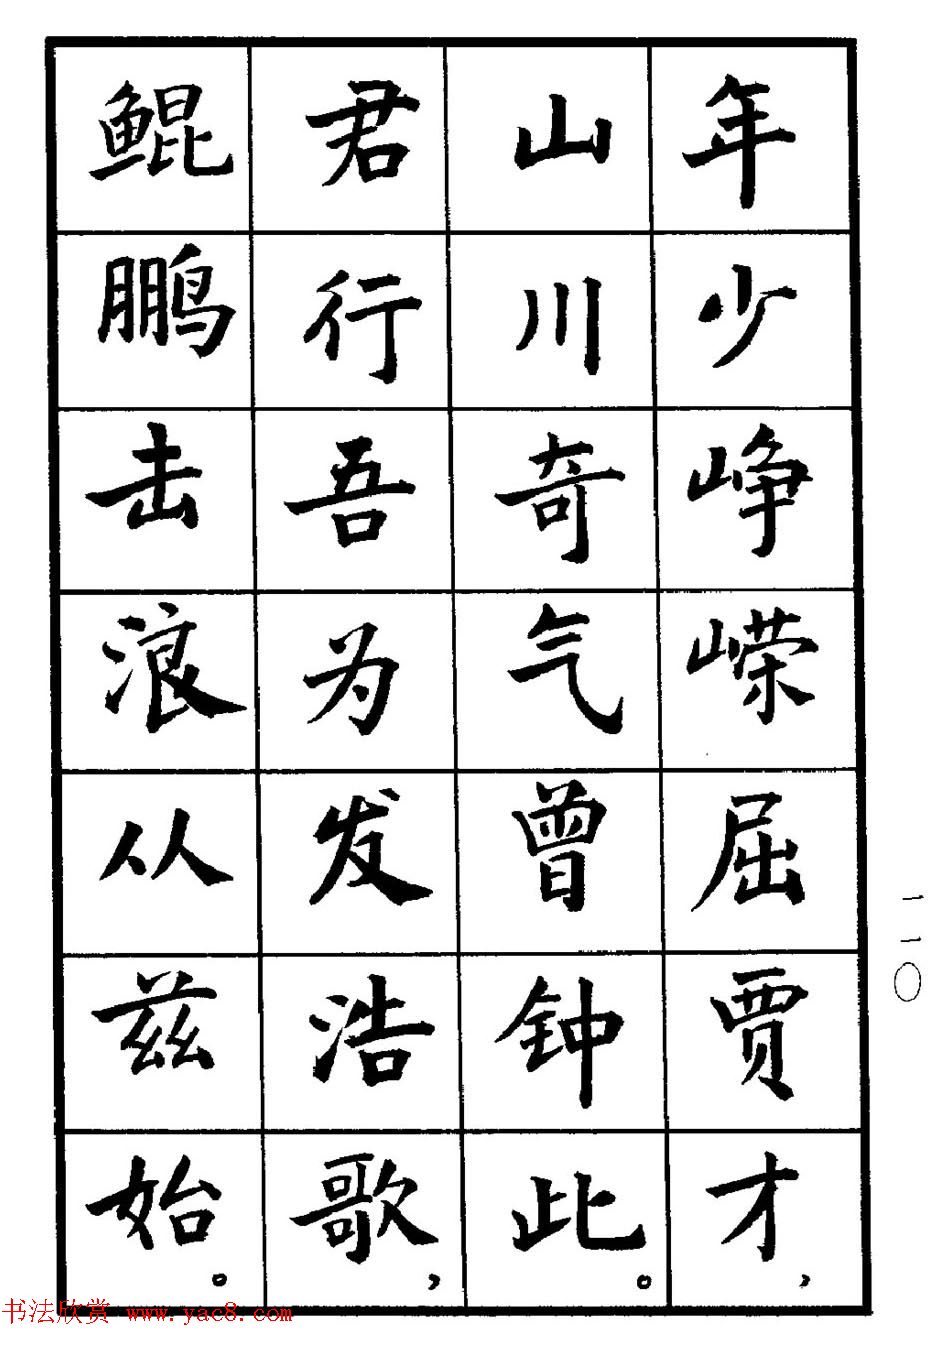 年少峥嵘屈贾才，
山川奇气曾钟此。
君行吾为发浩歌，
鲲鹏击浪从兹始。
一一〇
书法欣赏 www.yac8.com